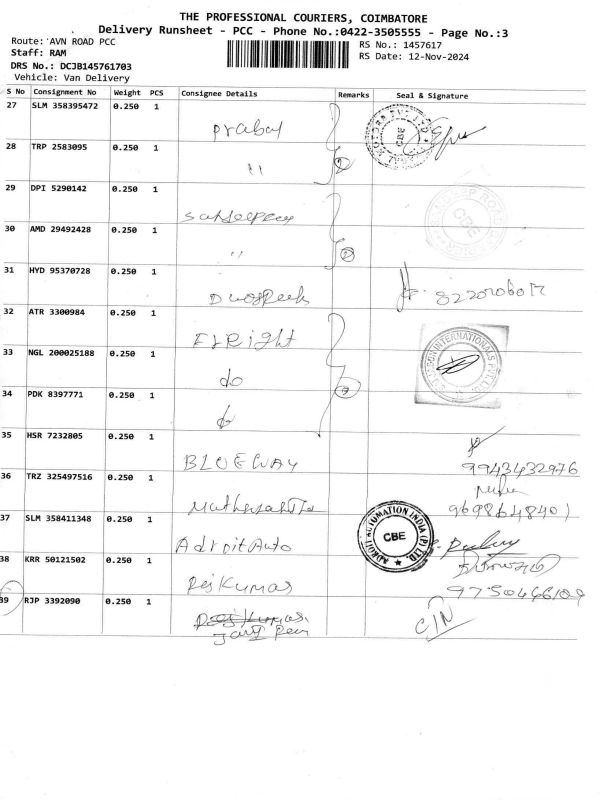 THE PROFESSIONAL COURIERS, COIMBATORE
Delivery Runsheet - PCC - Phone No.:0422-3505555 - Page No.:3
Route: AVN ROAD PCC
RS No.: 1457617
Staff: RAM
RS Date: 12-Nov-2024
DRS No.: DCJB145761703
Vehicle: Van Delivery
S No Consignment No Weight PCS Consignee Details Remarks Seal & Signature
27 SLM 358395472 0.250 1
Prabal
CBE
28 TRP 2583095 0.250 1
"
2
29 DPI 5290142 0.250 1
CBE
30 AMD 29492428 0.250 1
"
2
31 HYD 95370728 0.250 1
Duospeeds
32 ATR 3300984 0.250 1
FLRight
33 NGL 200025188 0.250 1
do
INTERNATIONALS PVT LTD
34 PDK 8397771 0.250 1
do
35 HSR 7232805 0.250 1
BLUEWAY
9943432976
36 TRZ 325497516 0.250 1
9698648401
37 SLM 358411348 0.250 1
Adroit Auto
ADROIT AUTOMATION INDIA (P) LTD.
CBE
38 KRR 50121502 0.250 1
Rajkumar
39 RJP 3392090 0.250 1
Rajkumar